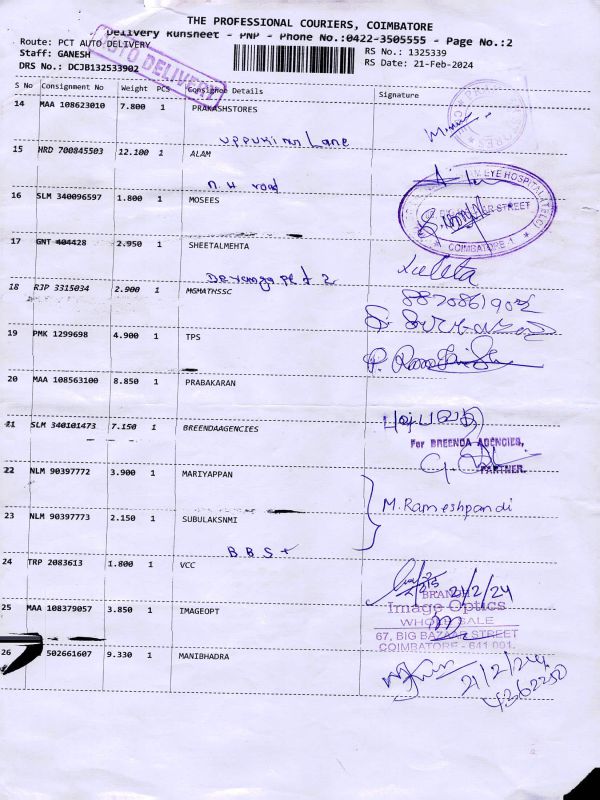 THE PROFESSIONAL COURIERS, COIMBATORE
Delivery Runsheet - PNP - Phone No.:0422-3505555 - Page No.:2
Route: PCT AUTO DELIVERY
RS No.: 1325339
Staff: GANESH
RS Date: 21-Feb-2024
DRS No.: DCJB132533902
DELIVERY
S No Consignment No Weight PCS Consignee Details Signature
14 MAA 108623010 7.800 1 PRAKASHSTORES
Lane
15 HRD 700845503 12.100 1 ALAM
N.H road
16 SLM 340096597 1.800 1 MOSEES
EYE HOSPITAL
STREET
COIMBATORE-1
17 GNT 404428 2.950 1 SHEETALMETHA
18 RJP 3315034 2.900 1 MGMATHSSC
19 PMK 1299698 4.900 1 TPS
20 MAA 108563100 8.850 1 PRABAKARAN
21 SLM 340101473 7.150 1 BREENDAAGENCIES
For BREENDA AGENCIES,
PARTNER.
22 NLM 90397772 3.900 1 MARIYAPPAN
M.Rameshpandi
23 NLM 90397773 2.150 1 SUBULAKSNMI
B B S
24 TRP 2083613 1.800 1 VCC
21/2/24
25 MAA 108379057 3.850 1 IMAGEOPT
BRANCH
Image Optics
WHOLESALE
67, BIG BAZAAR STREET
COIMBATORE - 641 001.
26 502661607 9.330 1 MANIBHADRA
21/2/24
4362250